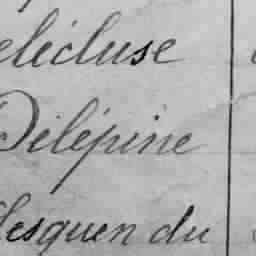 elécluse
Délépine
lesquen du